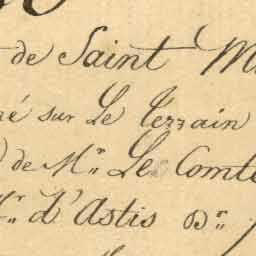 de Saint M
é sur Le Terrain
de Mr. Le Comte
Mr. d'Astis Dr.